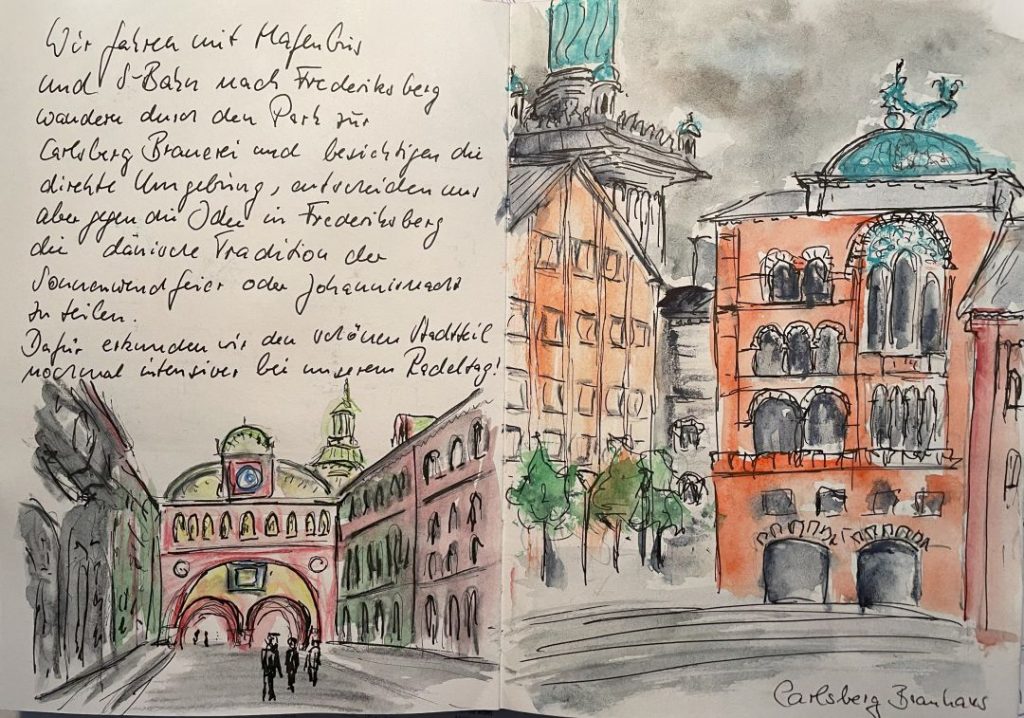 Wir fahren mit Hafenbus
und S-Bahn nach Frederiksberg
wandern durch den Park zur
Carlsberg Brauerei und besichtigen die
direkte Umgebung, entscheiden uns
aber gegen die Idee in Frederiksberg
die dänische Tradition der
Sonnenwendfeier oder Johannisnacht
zu teilen.
Dafür erkunden wir den schönen Stadtteil
nochmal intensiver bei unserem Radeltag!
Carlsberg Brauhaus